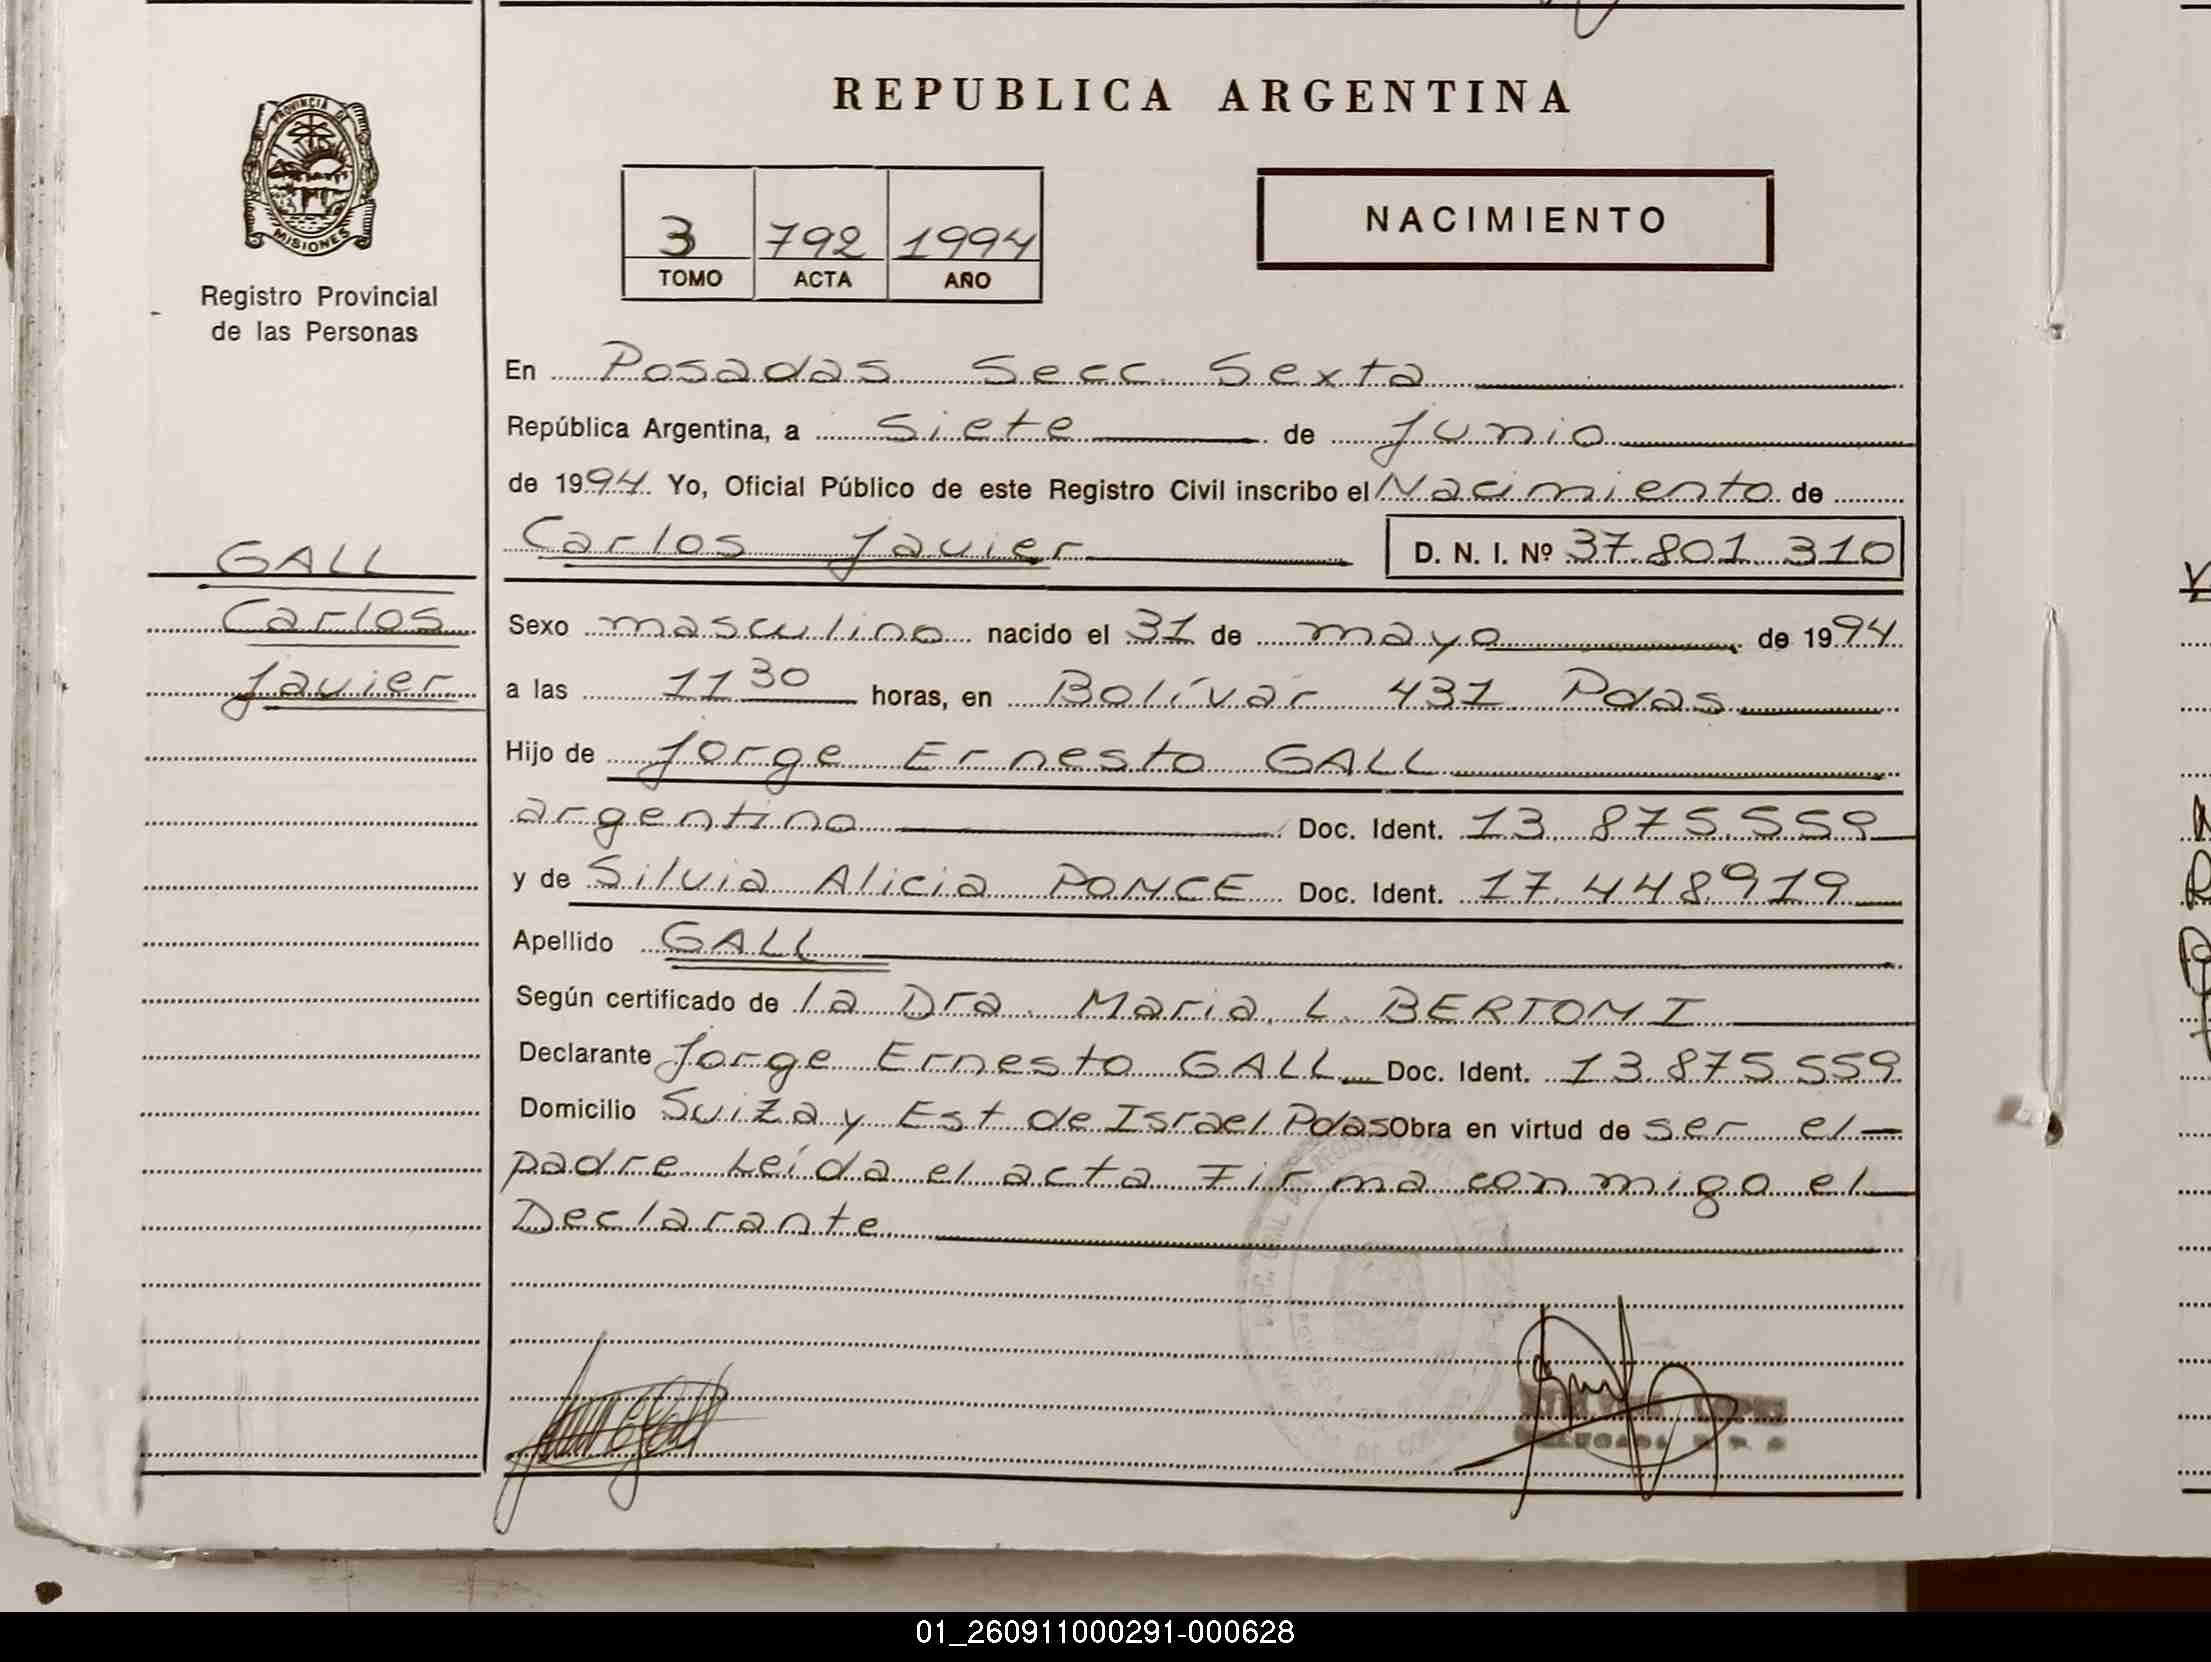 REPUBLICA ARGENTINA
PROVINCIA DE
MISIONES
Registro Provincial
de las Personas
3 792 1994
TOMO ACTA AÑO
NACIMIENTO
En Posadas Secc. Sexta
República Argentina, a Siete de Junio
de 1994. Yo, Oficial Público de este Registro Civil inscribo el Nacimiento de
Carlos Javier D. N. I. Nº 37.801.310
GALL
Carlos
Javier
Sexo masculino nacido el 31 de mayo de 1994
a las 11 30 horas, en Bolívar 431 Pdas
Hijo de Jorge Ernesto GALL
argentino Doc. Ident. 13.875.559
y de Silvia Alicia PONCE Doc. Ident. 17.448.919
Apellido GALL
Según certificado de la Dra. Maria L. BERTONI
Declarante Jorge Ernesto GALL Doc. Ident. 13.875.559
Domicilio Suiza y Est de Israel Pdas Obra en virtud de ser el
padre Leída el acta Firma conmigo el
Declarante
01_260911000291-000628